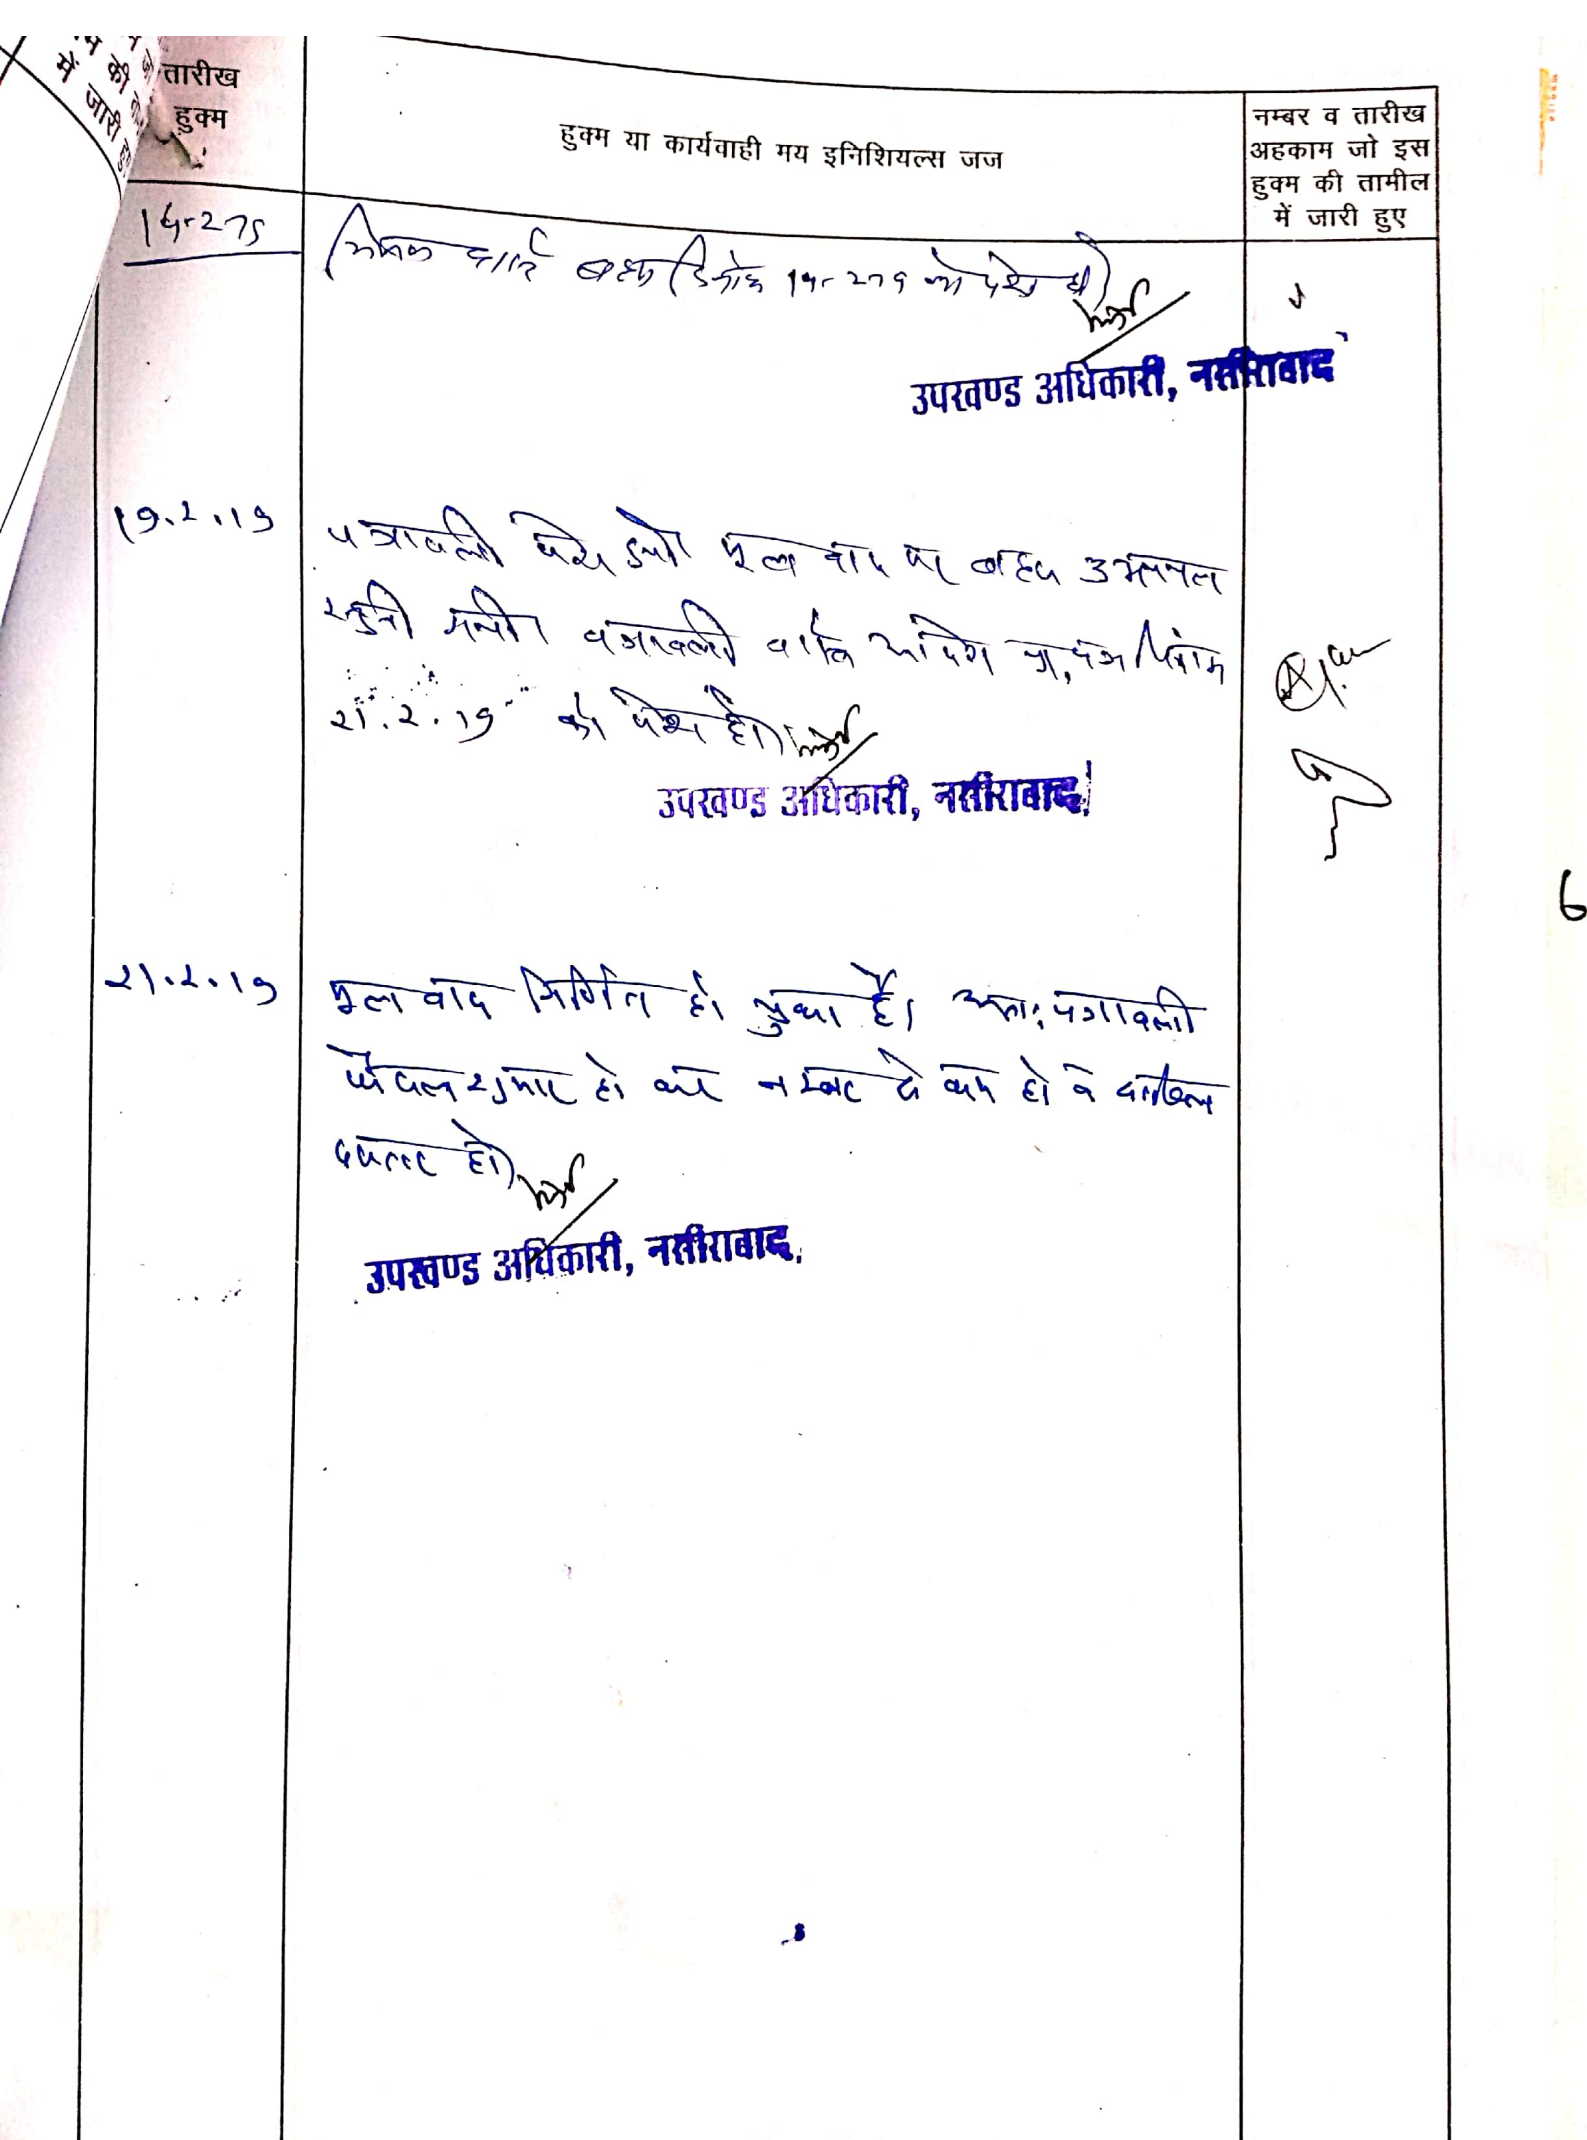 तारीख
हुक्म
हुक्म या कार्यवाही मय इनिशियल्स जज
नम्बर व तारीख
अहकाम जो इस
हुक्म की तामील
में जारी हुए
में जारी
बहस को पेश हो
उपखण्ड अधिकारी, नसीराबाद
19.2.19
पत्रावली पेश हुयी मूल वाद पर बहस
सुनी गयी। पत्रावली वास्ते आदेश
21.2.19 को पेश हो।
उपखण्ड अधिकारी, नसीराबाद
21.2.19
मूल वाद निर्णित हो चुका है। अतः पत्रावली
फैसल शुमार हो कर नम्बर से कम हो व दाखिल
दफ्तर हो।
उपखण्ड अधिकारी, नसीराबाद
6